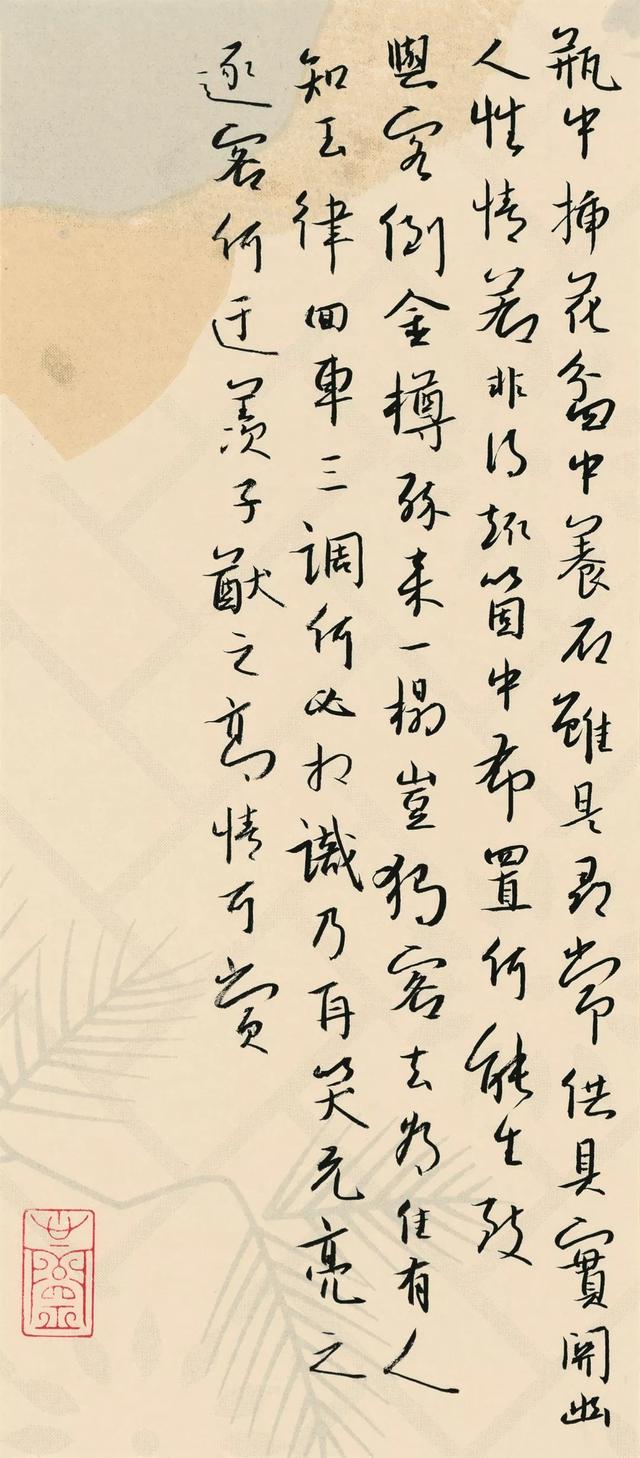 瓶中插花盆中養石雖是尋常供具實關幽
人性情若非得趣箇中布置何能生致
與客倒金樽醉來一榻豈獨客去為佳有人
知玉律回車三調何必相識乃再笑元亮之
逐客何迂羨子猷之高情可賞